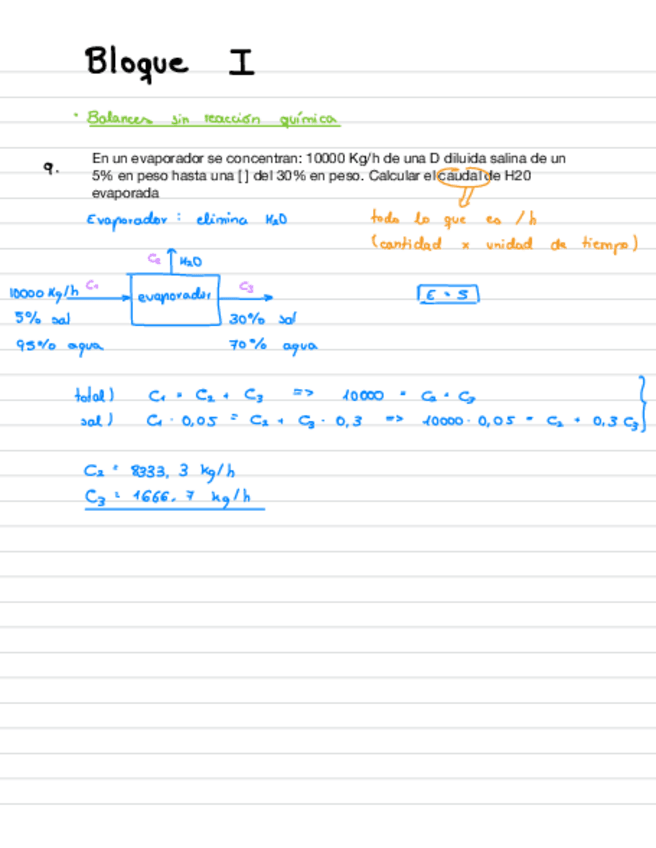 Bloque I
· Balances sin reacción química
9.
En un evaporador se concentran: 10000 Kg/h de una D diluida salina de un
5% en peso hasta una [ ] del 30% en peso. Calcular el caudal de H20
evaporada
Evaporador : elimina H2O
todo lo que es /h
(cantidad x unidad de tiempo)
C2 H2O
10000 Kg/h C1 evaporador C3
E = S
5% sal 30% sal
95% agua 70% agua
total) C1 = C2 + C3 => 10000 = C2 + C3
sal) C1 · 0,05 = C2 + C3 · 0,3 => 10000 · 0,05 = C2 + 0,3 C3
C2 = 8333,3 kg/h
C3 = 1666,7 kg/h